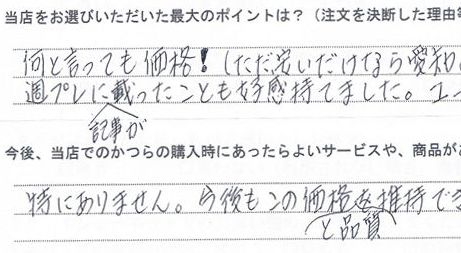 当店をお選びいただいた最大のポイントは？（注文を決断した理由等
何と言っても価格！（ただ安いだけなら愛知
週プレに載ったことも好感持てました。ユー
記事が
今後、当店でのかつらの購入時にあったらよいサービスや、商品が
特にありません。今後もこの価格を維持でき
と品質